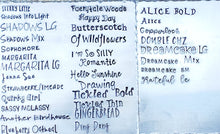 Shadows Infolight
SHADOWS LG
Shadows Mix
SOPHOMORE
MARGARITA
MARGARITA LG
Jenna Sue
Strawberry/Limeade
Quirky Girl
SASSY MOLASSY
Another Birdhouse
Fairytale Woods
Happy Day
Butterscotch
Of Wildflowers
I'm SO SILLY
Romantic
Hello Sunshine
Drawing
Tickled Bold
Tickled Thin
GINGERBREAD
Ding Dang
ALICE BOLD
Alice
DOUBLE ONZ
DREAMCAKE LG
Dreamcake Mix
DREAMCAKE SM
Grateful